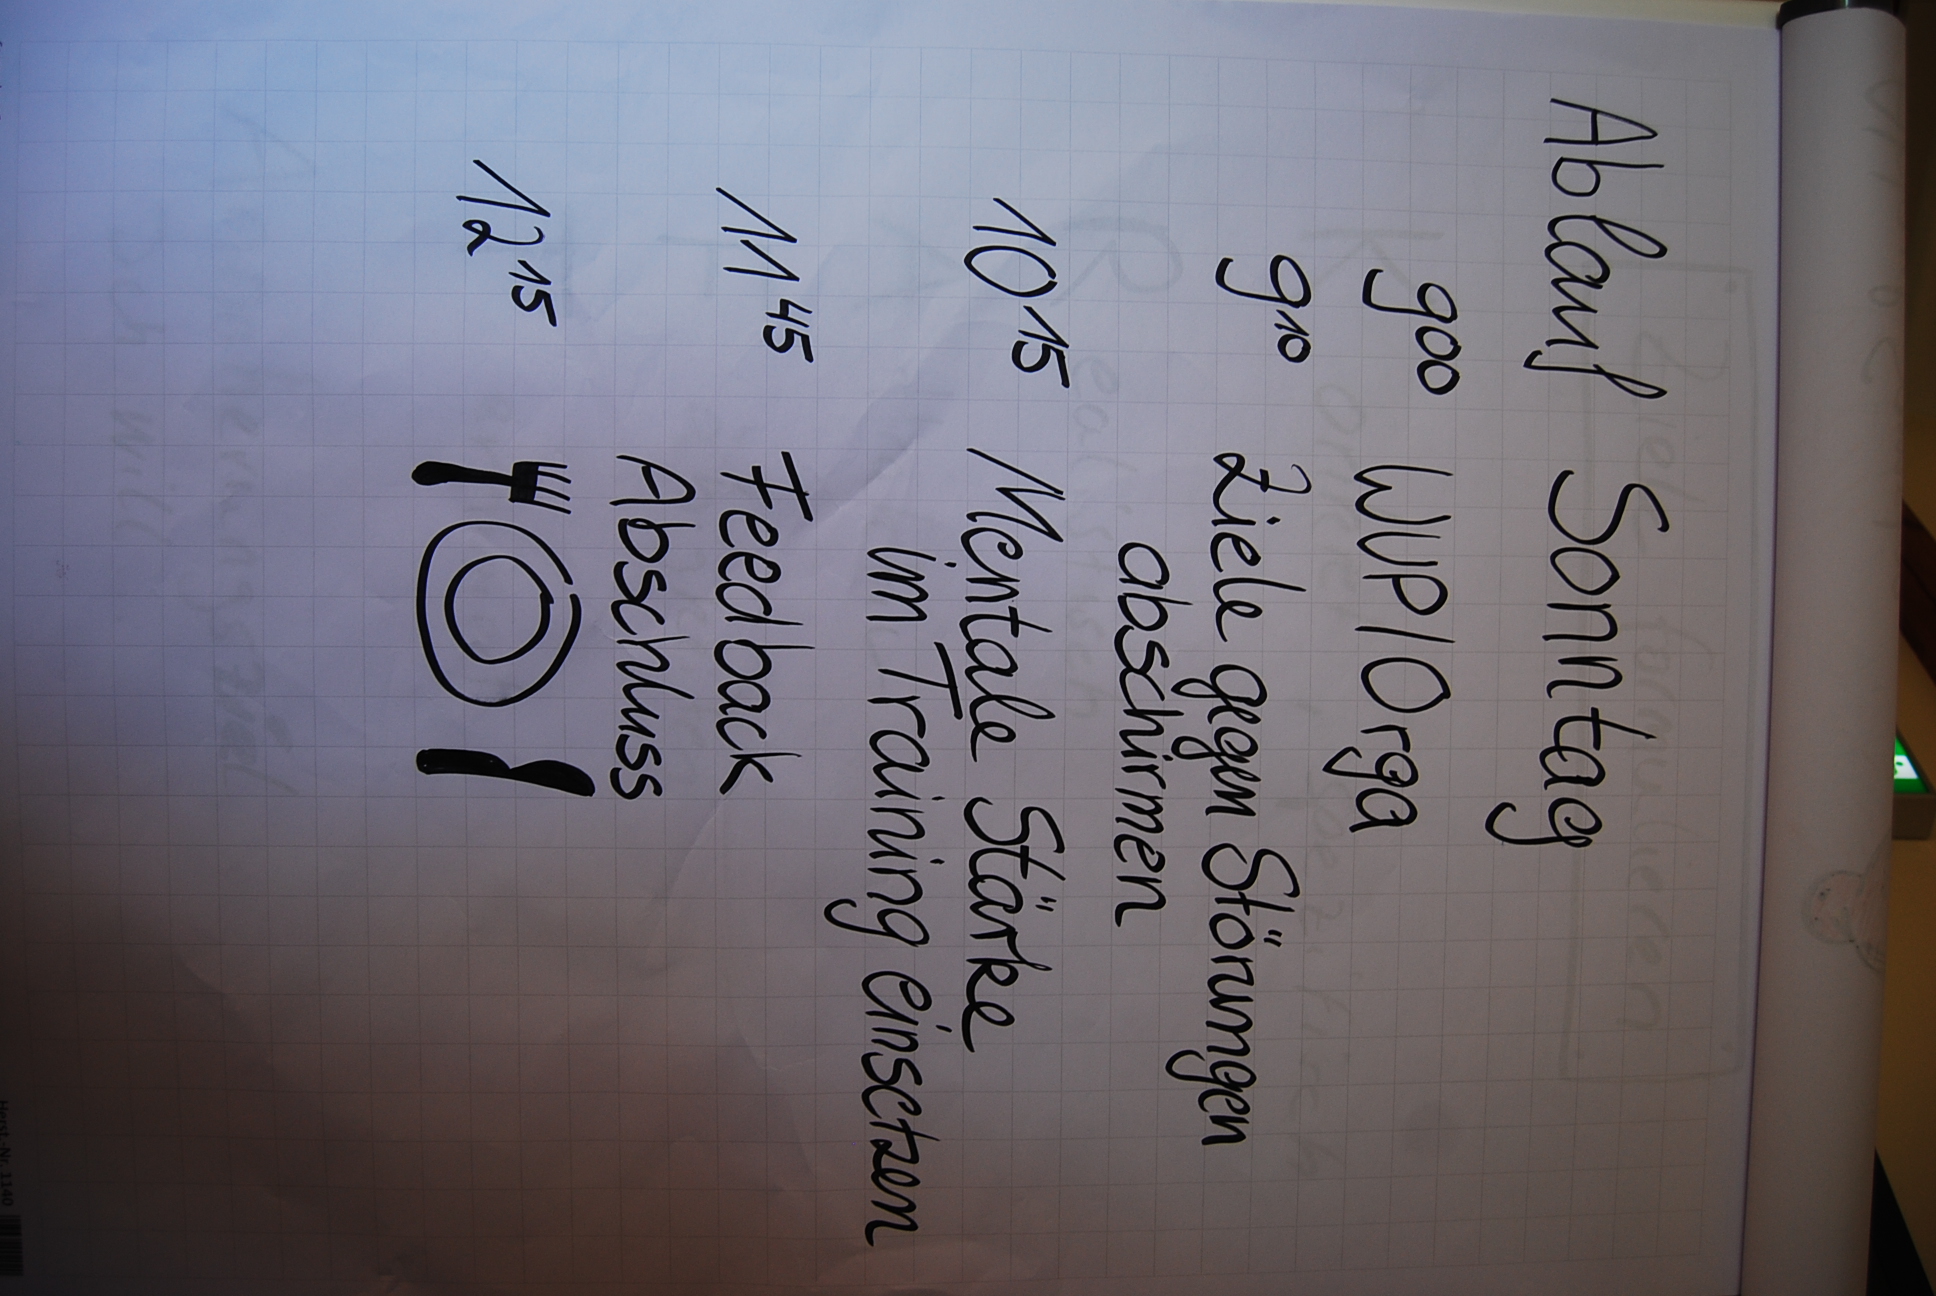 Ablauf Sonntag
9⁰⁰ WUP/Orga
9¹⁰ Ziele gegen Störungen
abschirmen
10¹⁵ Mentale Stärke
im Training einsetzen
11⁴⁵ Feedback
Abschluss
12¹⁵